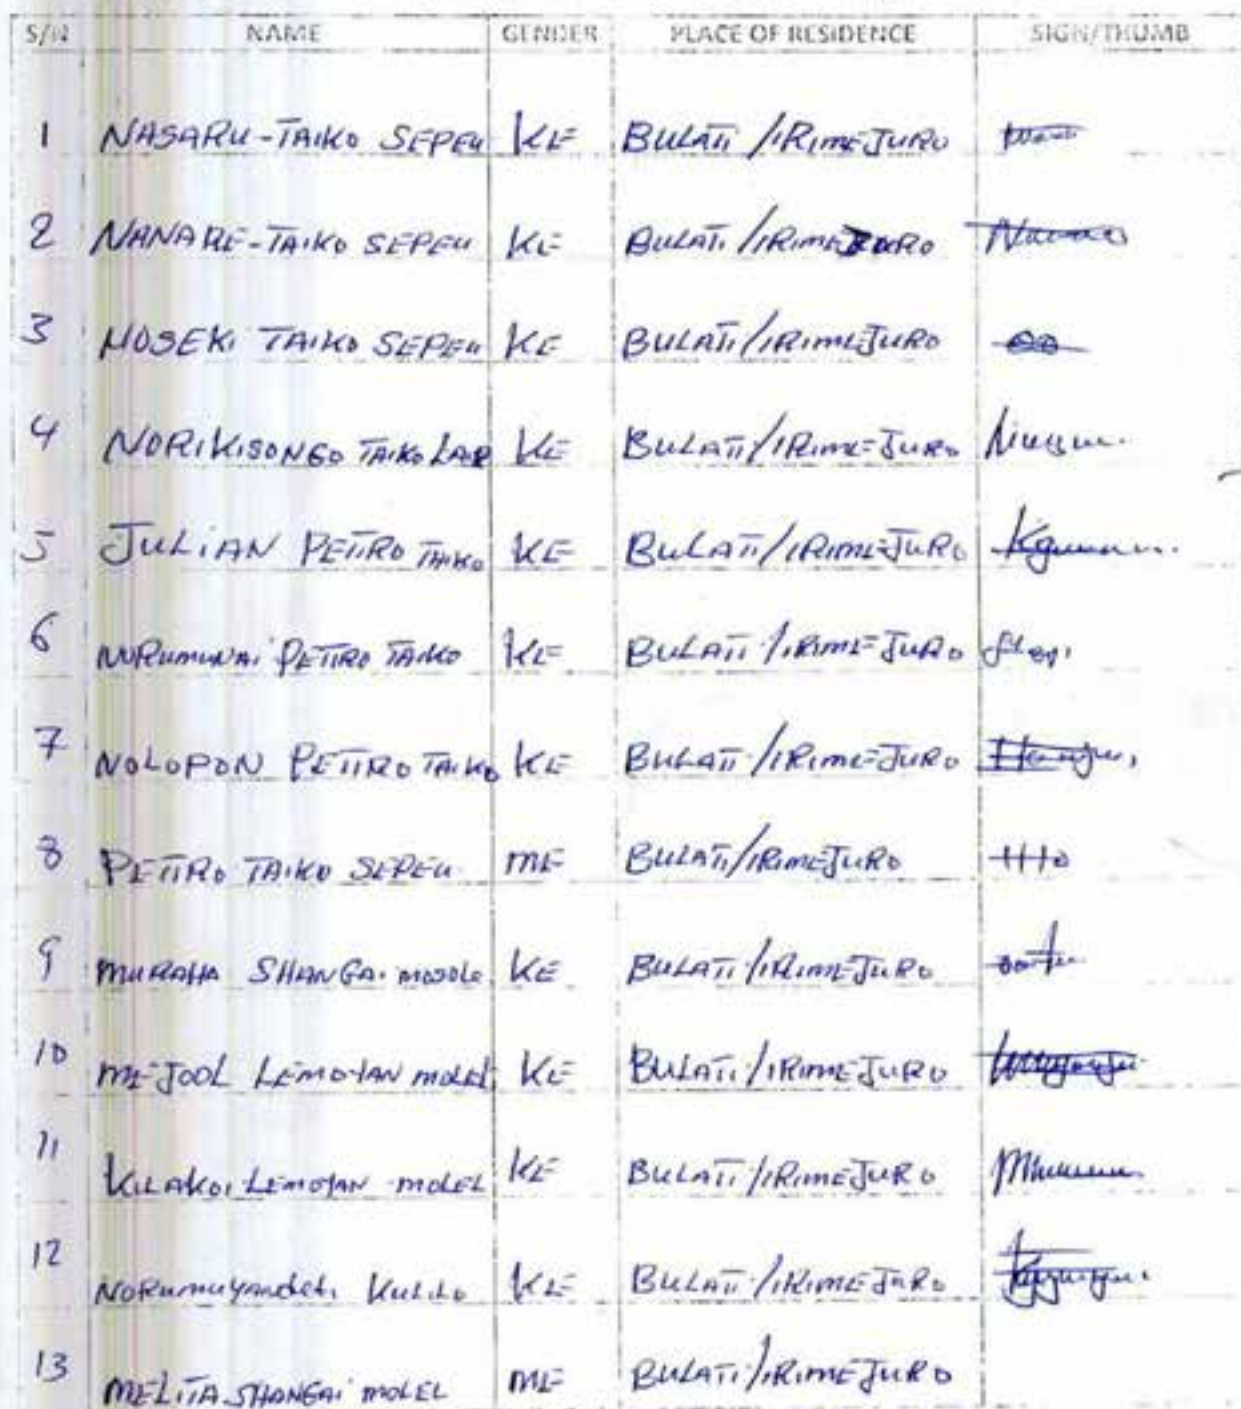 S/N NAME GENDER PLACE OF RESIDENCE SIGN/THUMB
1 NASARU-TAIKO SEPEU KE BULATI/IRIMEJURO
2 NANARE-TAIKO SEPEU KE BULATI/IRIMEJURO
3 NOSEKI TAIKO SEPEU KE BULATI/IRIMEJURO
4 NORIKISONGO TAIKO KE BULATI/IRIMEJURO
5 JULIAN PETIRO TAIKO KE BULATI/IRIMEJURO
6 NORUMUNAI PETIRO TAIKO KE BULATI/IRIMEJURO
7 NOLOPON PETIRO TAIKO KE BULATI/IRIMEJURO
8 PETIRO TAIKO SEPEU ME BULATI/IRIMEJURO
9 SHANGAI KE BULATI/IRIMEJURO
10 MEJOOL LEMOYAN MOLEL KE BULATI/IRIMEJURO
11 KILAKOI LEMOYAN MOLEL KE BULATI/IRIMEJURO
12 KE BULATI/IRIMEJURO
13 MELITA SHANGAI MOLEL ME BULATI/IRIMEJURO